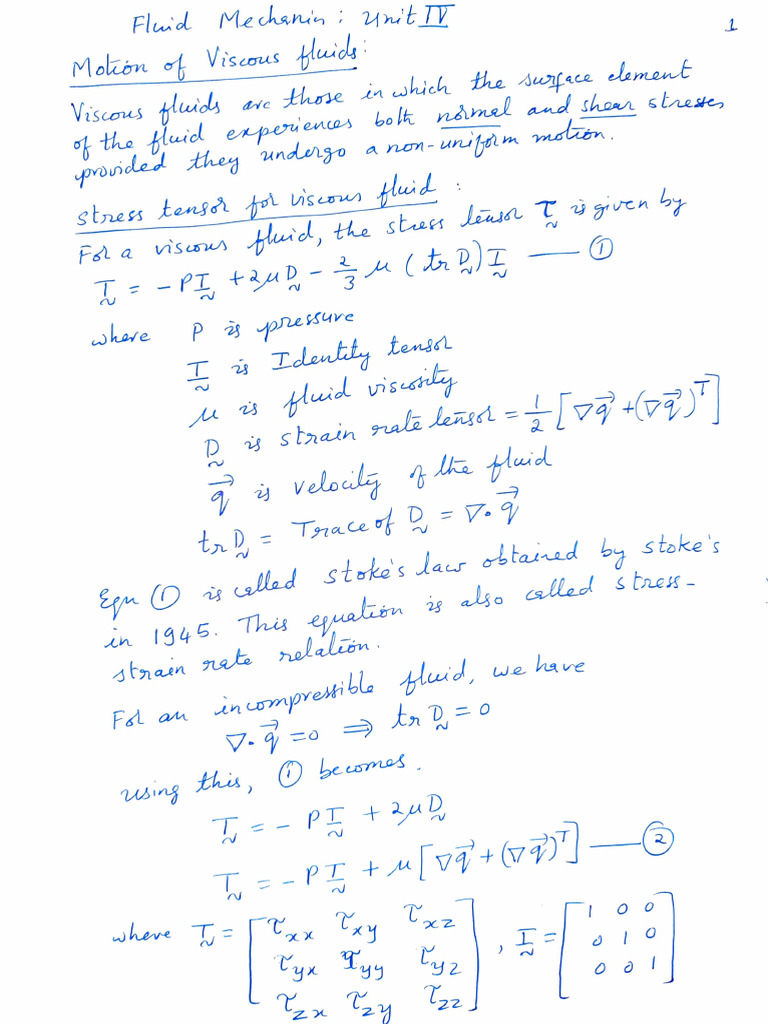 Fluid Mechanics: Unit IV
1
Motion of Viscous fluids:
Viscous fluids are those in which the surface element
of the fluid experiences both normal and shear stresses
provided they undergo a non-uniform motion.
Stress tensor for viscous fluid :
For a viscous fluid, the stress tensor τ̰ is given by
T̰ = -PḬ + 2μD̰ - 2/3 μ (tr D̰)Ḭ —— ①
where P is pressure
Ḭ is Identity tensor
μ is fluid viscosity
D̰ is strain rate tensor = 1/2 [∇q⃗ + (∇q⃗)ᵀ]
q⃗ is velocity of the fluid
tr D̰ = Trace of D̰ = ∇·q⃗
Eqn ① is called stoke's law obtained by stoke's
in 1945. This equation is also called stress-
strain rate relation.
For an incompressible fluid, we have
∇·q⃗ = 0 ⟹ tr D̰ = 0
using this, ① becomes.
T̰ = - PḬ + 2μD̰
T̰ = - PḬ + μ[∇q⃗ + (∇q⃗)ᵀ] —— ②
where T̰ = [τxx τxy τxz , Ḭ = [1 0 0
τyx τyy τyz 0 1 0
τzx τzy τzz] 0 0 1]